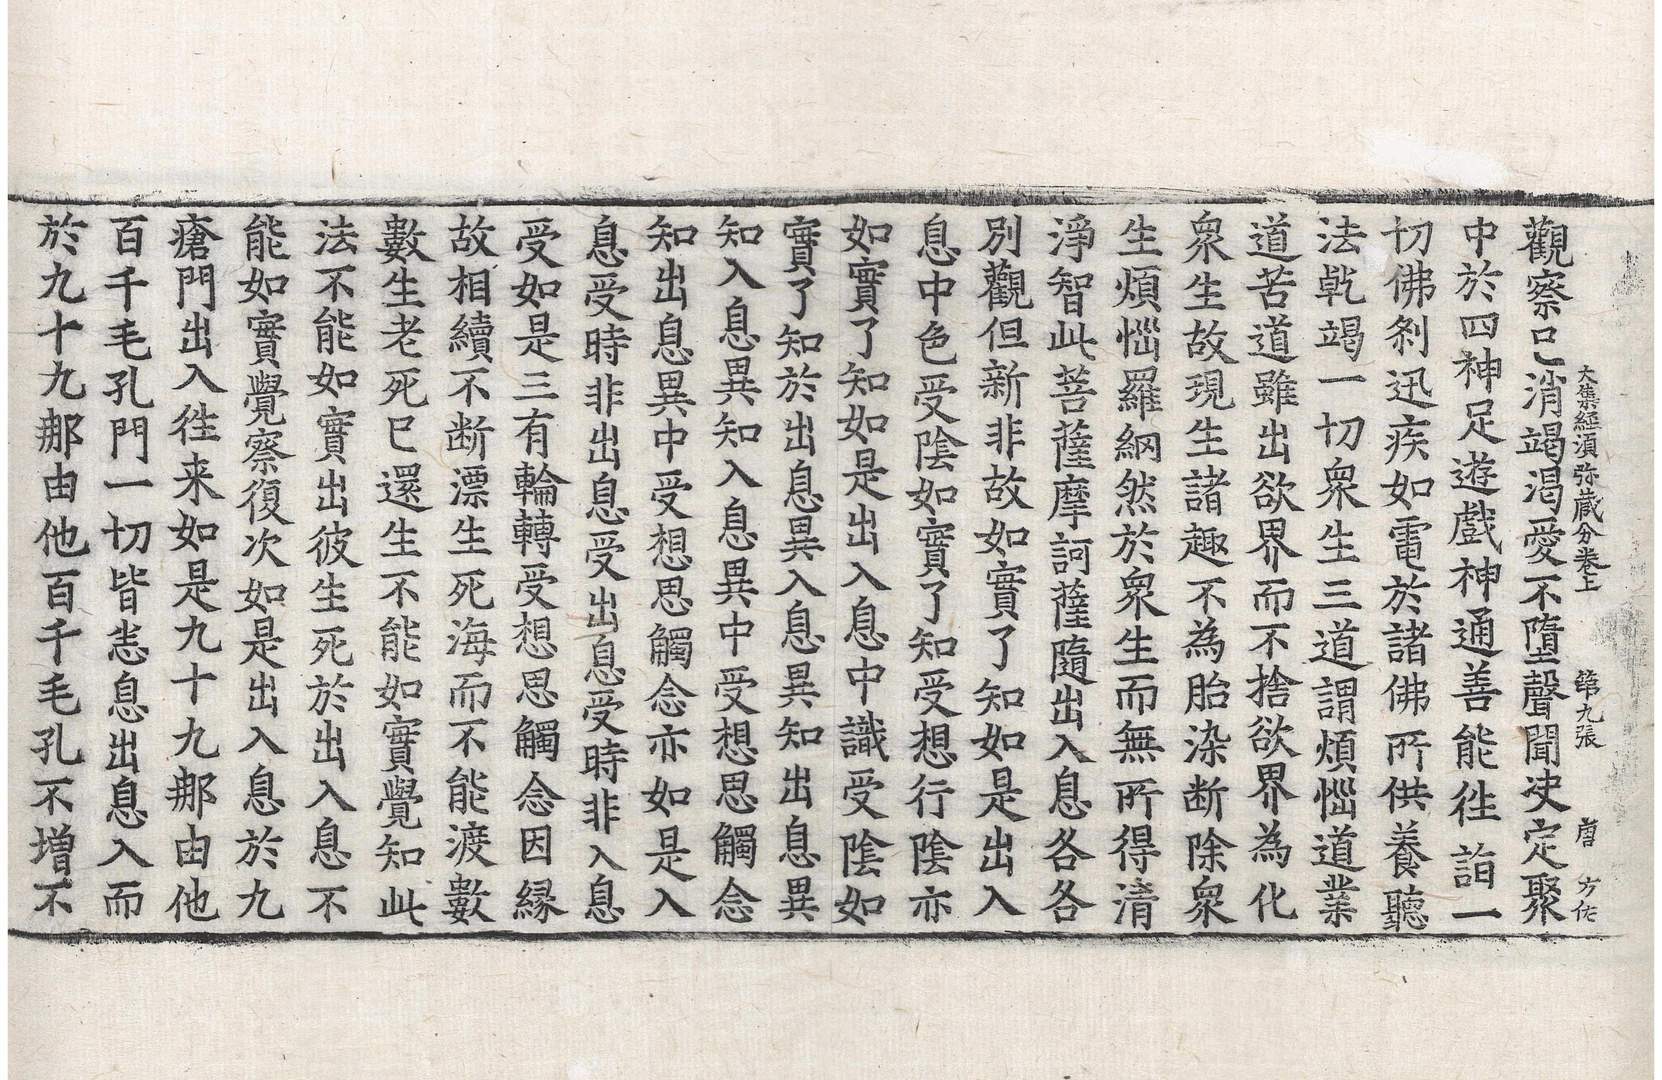 大集經須弥蔵分卷上 第九張 唐 方佐
觀察已消竭渴愛不墮聲聞决定聚
中於四神足遊戲神通善能徃詣一
切佛剎迅疾如電於諸佛所供養聽
法乾竭一切衆生三道謂煩惱道業
道苦道雖出欲界而不捨欲界為化
衆生故現生諸趣不為胎染断除衆
生煩惱羅網然於衆生而無所得清
淨智此菩薩摩訶薩隨出入息各各
別觀但新非故如實了知如是出入
息中色受陰如實了知受想行陰亦
如實了知如是出入息中識受陰如
實了知於出息異入息異知出息異
知入息異知入息異中受想思觸念
知出息異中受想思觸念亦如是入
息受時非出息受出息受時非入息
受如是三有輪轉受想思觸念因緣
故相續不断漂生死海而不能渡數
數生老死已還生不能如實覺知此
法不能如實出彼生死於出入息不
能如實覺察復次如是出入息於九
瘡門出入徃来如是九十九那由他
百千毛孔門一切皆恙息出息入而
於九十九那由他百千毛孔不增不